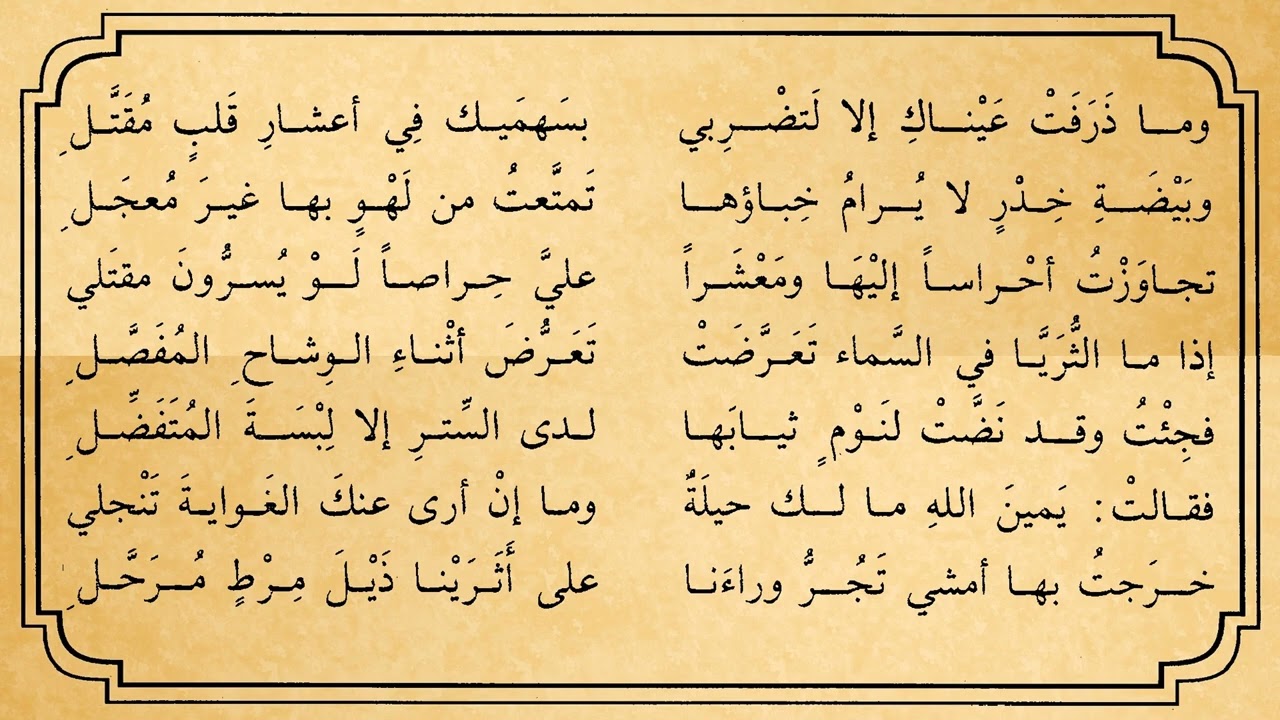 وما ذَرَفَتْ عَيْناكِ إلا لَتضْرِبي بسَهمَيك فِي أعشارِ قَلبٍ مُقَتَّلِ
وبَيْضَةِ خِدْرٍ لا يُرامُ خِباؤها تَمتَّعتُ من لَهْوٍ بها غيرَ مُعجَلِ
تجاوَزْتُ أحْراساً إليْهَا ومَعْشَراً عليَّ حِراصاً لَوْ يُسرُّونَ مقتَلي
إذا ما الثُّرَيَّا في السَّماء تَعَرَّضَتْ تَعَرُّضَ أثْناءِ الوِشاحِ المُفَصَّلِ
فجِئْتُ وقد نَضَّتْ لنَوْمٍ ثيابَها لدى السِّترِ إلا لِبْسَةَ المُتَفَضِّلِ
فقالتْ: يَمينَ اللهِ ما لك حيلَةٌ وما إنْ أرى عنكَ الغَوايةَ تَنْجلي
خرَجتُ بها أمشي تَجُرُّ وراءَنا على أَثَرَيْنا ذَيْلَ مِرْطٍ مُرَحَّلِ